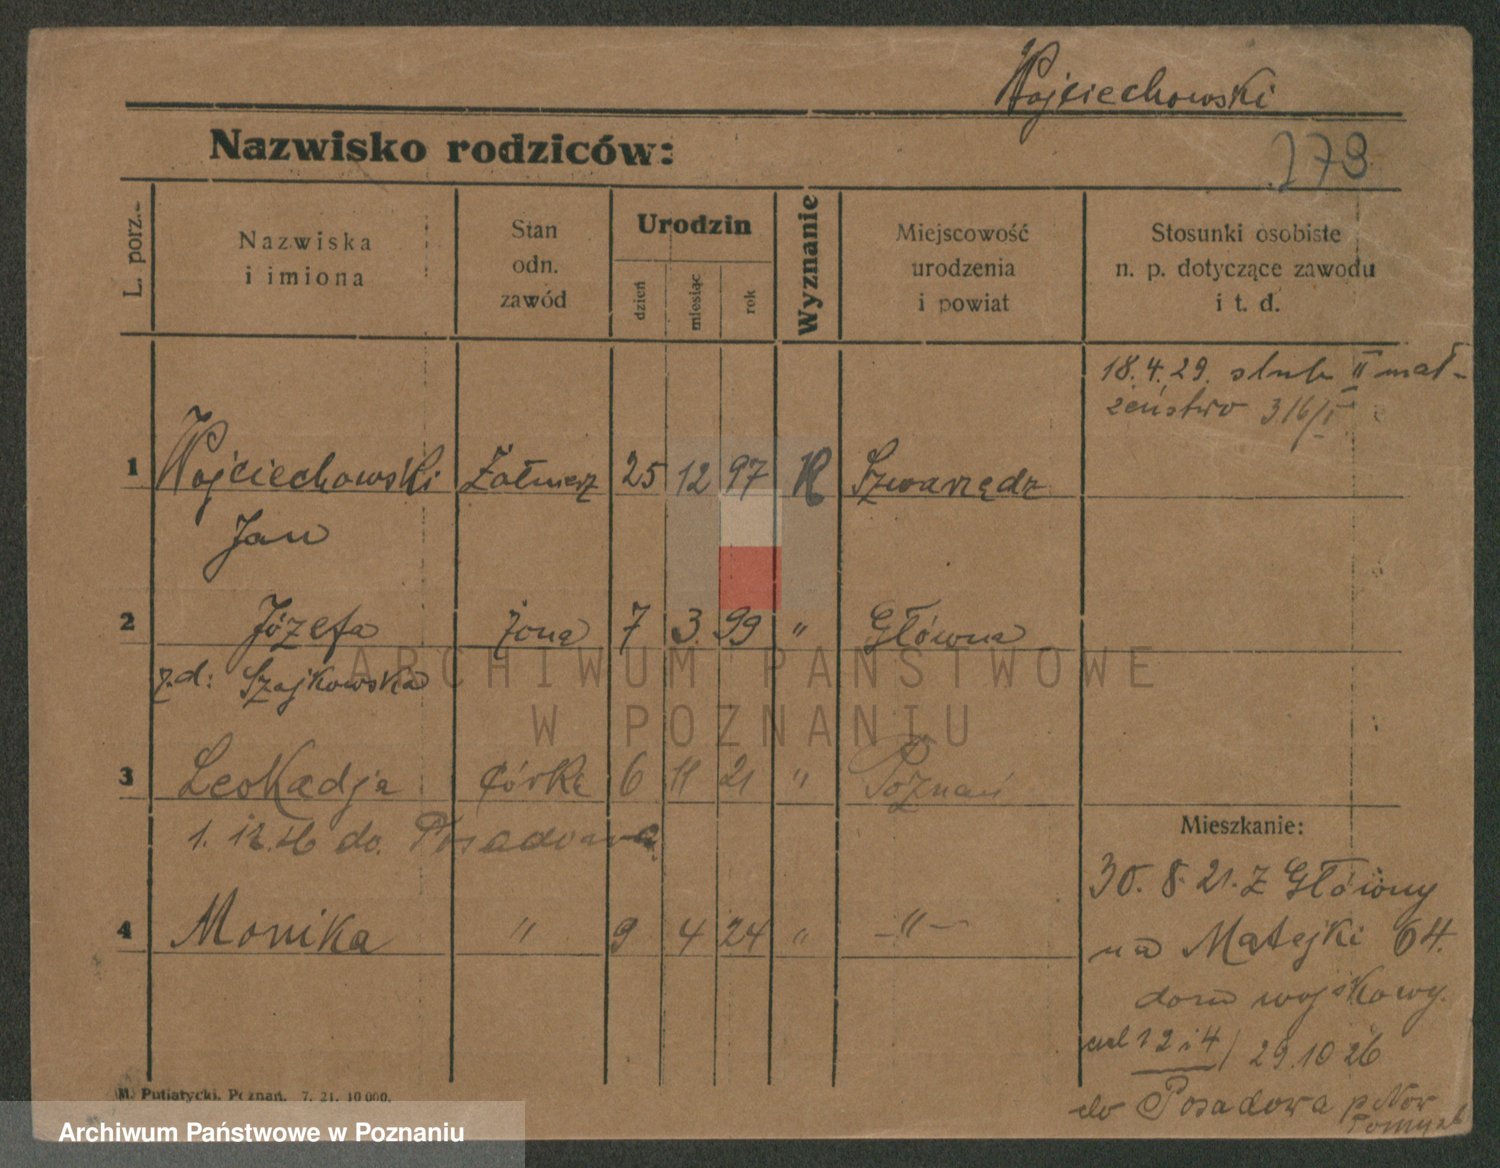 Wojciechowski
Nazwisko rodziców:
279
L. porz.
Nazwiska i imiona
Stan odn. zawód
Urodzin
dzień miesiąc rok
Wyznanie
Miejscowość urodzenia i powiat
Stosunki osobiste n. p. dotyczące zawodu i t. d.
18.4.29. slub II mał-
zeństwo 316/I
1 Wojciechowski Żołnierz 25 12 97 K Szwarzędz
Jan
2 Józefa żona 7 3. 99 " Główna
z.d: Szajkowska
ARCHIWUM PAŃSTWOWE
W POZNANIU
3 Leokadja córka 6 11 21 " Poznań
1. 12. 26 do. Posadowa
Mieszkanie:
30. 8. 21. z Główny
4 Monika " 9 4 24 " -"-
na Matejki 64.
dom wojskowy.
1 2 i 4 / 29.10 26
do Posadowa p. Now
Tomyśl
M. Putiatycki, Poznań. 7. 21. 10 000.
Archiwum Państwowe w Poznaniu